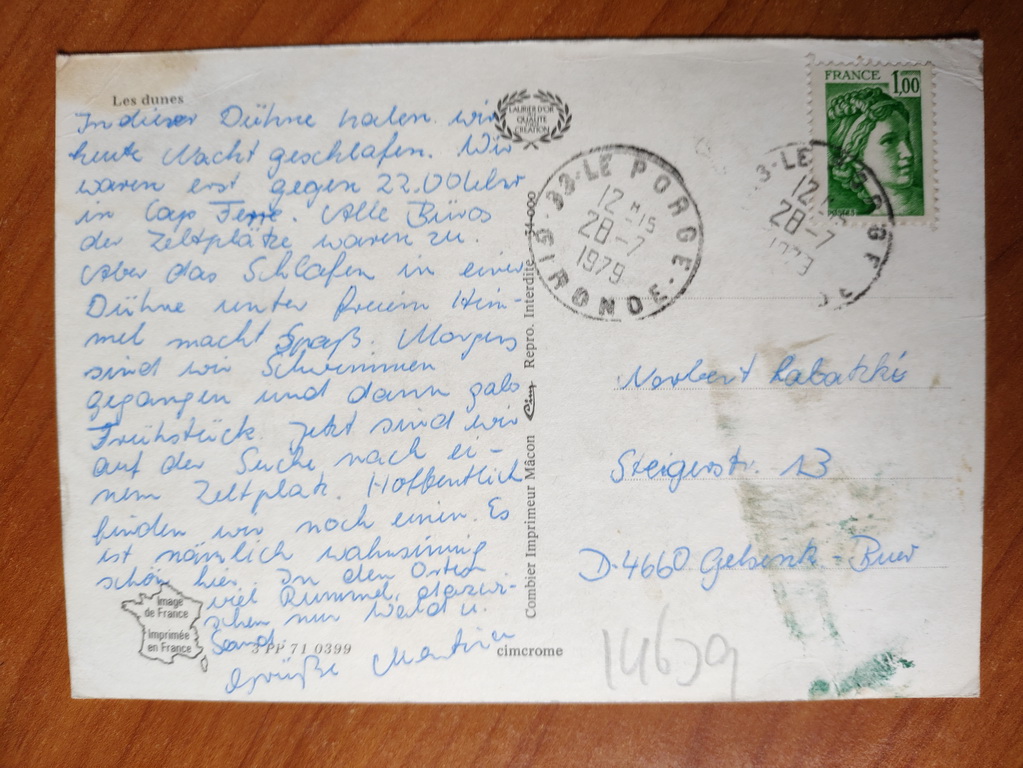 Les dunes
In dieser Dühne haben wir
heute Nacht geschlafen. Wir
waren erst gegen 22.00 Uhr
in Cap Ferre. Alle Büros
der Zeltplätze waren zu.
Aber das Schlafen in einer
Dühne unter freiem Him-
mel macht Spaß. Morgens
sind wir Schwimmen
gegangen und dann gabs
Frühstück. Jetzt sind wir
auf der Suche nach ei-
nem Zeltplatz. Hoffentlich
finden wir noch einen. Es
ist nämlich wahnsinnig
schön hier. In den Orten
viel Rummel, dazwi-
schen nur Wald u.
Sand.
Grüße Martin
Image
de France
Imprimée
en France
3 PP 71 0399
cimcrome
Combier Imprimeur Mâcon Cim Repro. Interdite 34 000
LAURIER D'OR
DE LA
QUALITÉ
CRÉATION
33-LE PORGE
12 H 15
28-7
1979
GIRONDE
FRANCE 1,00
3-LE PORGE
12
28-7
1979
DE
Norbert Labatzké
Steigerstr. 13
D-4660 Gelsenk.-Buer
14639